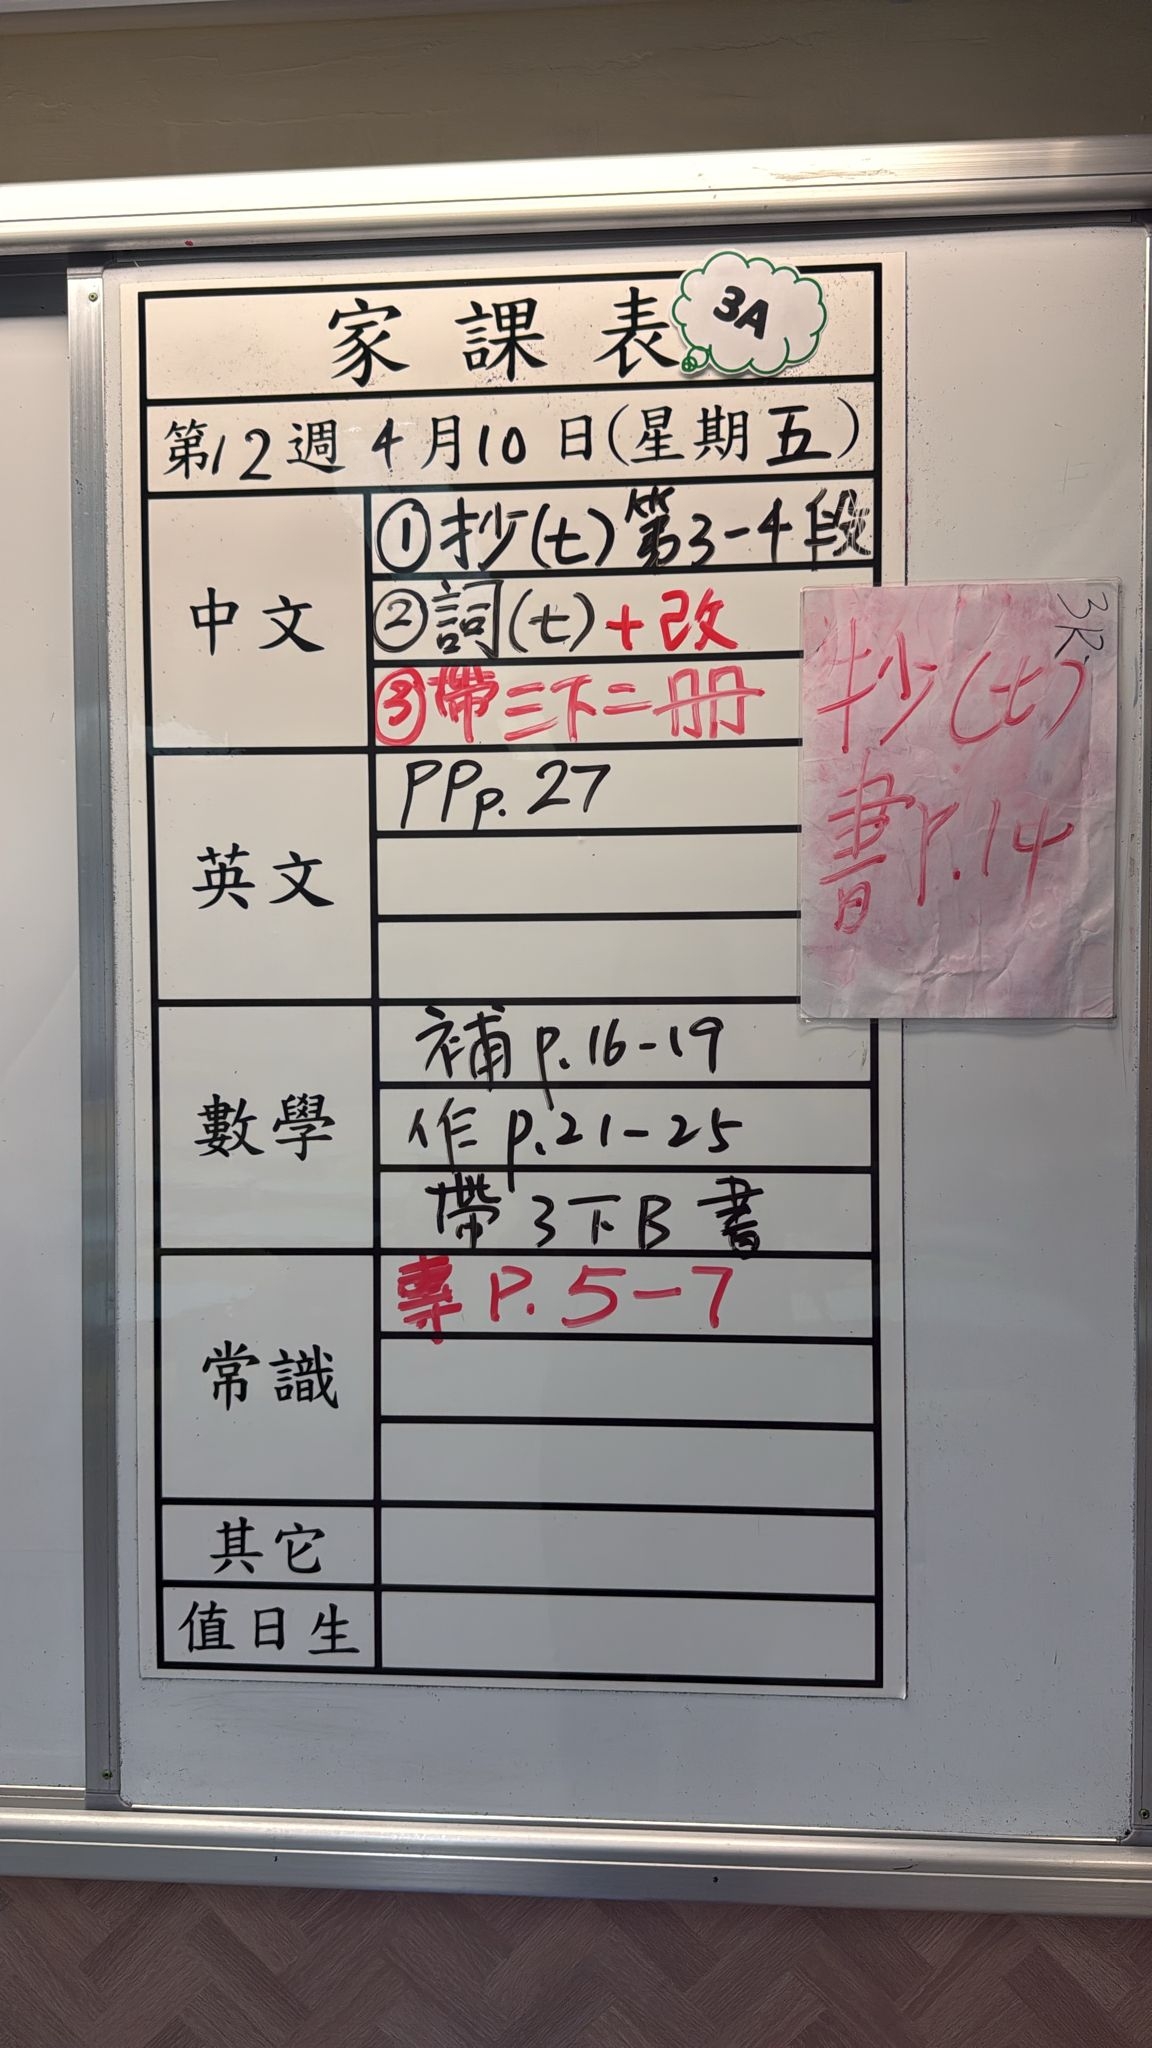 家課表
3A
第12週 4月10日(星期五)
中文
①抄(七)第3-4段
②詞(七)+改
③帶三下二冊
3R
抄(七)
書P.14
英文
PP p. 27
數學
補 p.16-19
作 p.21-25
帶 3下B 書
常識
專 P. 5-7
其它
值日生